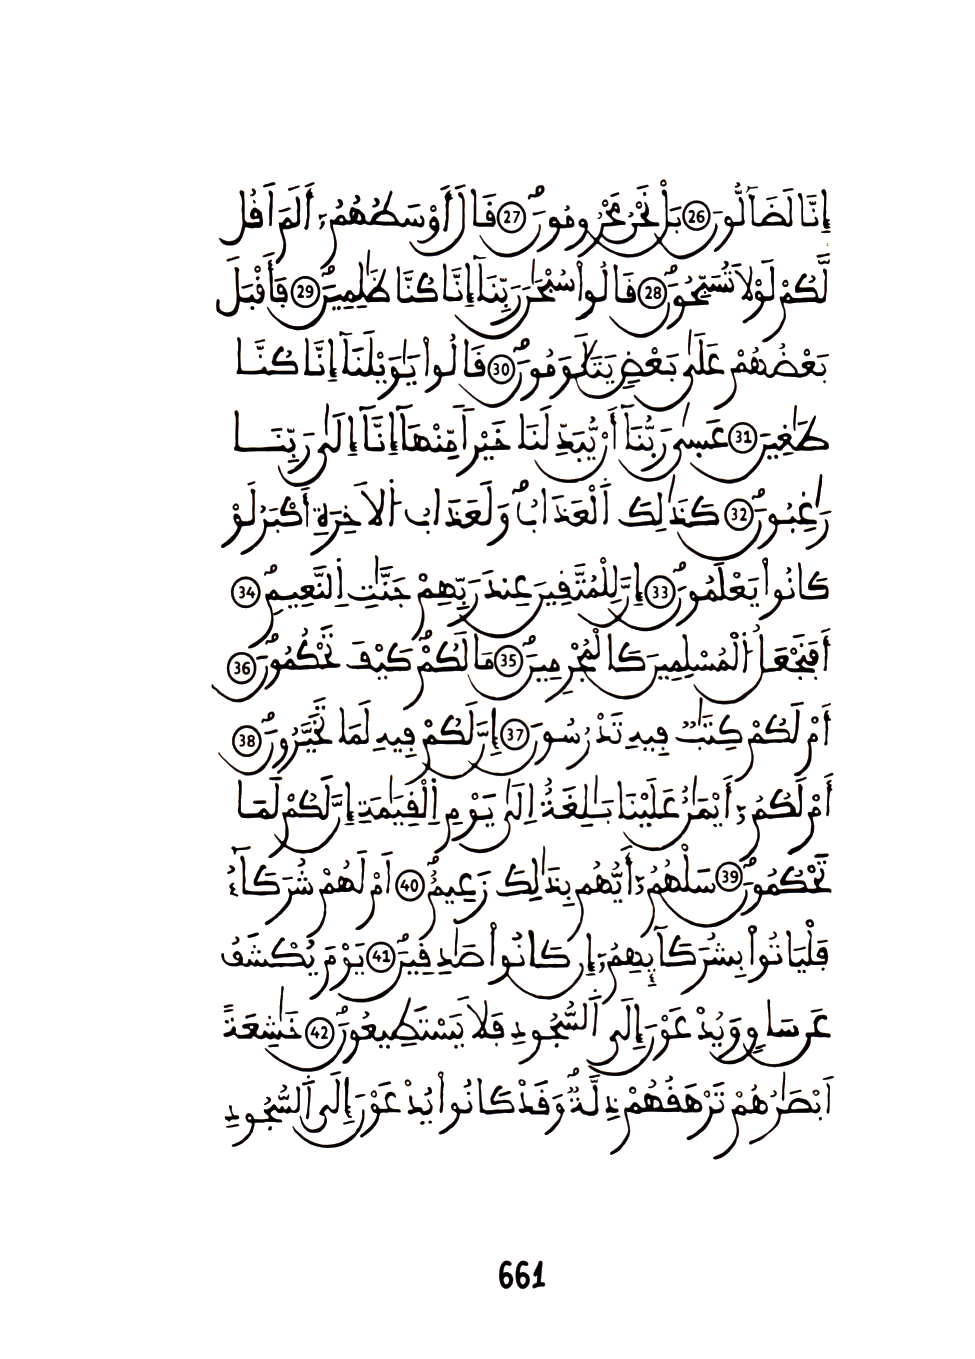 إِنَّا لَضَآلُّونَ 26 بَلْ نَحْنُ مَحْرُومُونَ 27 قَالَ أَوْسَطُهُمُۥٓ أَلَمَ اَقُل
لَّكُمْ لَوْلَا تُسَبِّحُونَ 28 قَالُواْ سُبْحَٰنَ رَبِّنَآ إِنَّا كُنَّا ظَٰلِمِينَ 29 فَأَقْبَلَ
بَعْضُهُمْ عَلَىٰ بَعْضٖ يَتَلَٰوَمُونَ 30 قَالُواْ يَٰوَيْلَنَآ إِنَّا كُنَّا
طَٰغِينَ 31 عَسَىٰ رَبُّنَآ أَنْ يُّبَدِّلَنَا خَيْراٗ مِّنْهَآ إِنَّآ إِلَىٰ رَبِّنَا
رَٰغِبُونَ 32 كَذَٰلِكَ اَ۬لْعَذَابُ وَلَعَذَابُ اُ۬لَاخِرَةِ أَكْبَرُ لَوْ
كَانُواْ يَعْلَمُونَ 33 إِنَّ لِلْمُتَّقِينَ عِندَ رَبِّهِمْ جَنَّٰتِ اِ۬لنَّعِيمِ 34
أَفَنَجْعَلُ اُ۬لْمُسْلِمِينَ كَالْمُجْرِمِينَ 35 مَا لَكُمْ كَيْفَ تَحْكُمُونَ 36
أَمْ لَكُمْ كِتَٰبٞ فِيهِ تَدْرُسُونَ 37 إِنَّ لَكُمْ فِيهِ لَمَا تَخَيَّرُونَ 38
أَمْ لَكُمُۥٓ أَيْمَٰنٌ عَلَيْنَا بَٰلِغَةٌ اِلَىٰ يَوْمِ اِ۬لْقِيَٰمَةِ إِنَّ لَكُمْ لَمَا
تَحْكُمُونَ 39 سَلْهُمُۥٓ أَيُّهُم بِذَٰلِكَ زَعِيمٌ 40 اَمْ لَهُمْ شُرَكَآءُ
فَلْيَاتُواْ بِشُرَكَآئِهِمُۥٓ إِن كَانُواْ صَٰدِقِينَ 41 يَوْمَ يُكْشَفُ
عَن سَاقٖ وَيُدْعَوْنَ إِلَى اَ۬لسُّجُودِ فَلَا يَسْتَطِيعُونَ 42 خَٰشِعَةً
اَبْصَٰرُهُمْ تَرْهَقُهُمْ ذِلَّةٞ وَقَدْ كَانُواْ يُدْعَوْنَ إِلَى اَ۬لسُّجُودِ
661